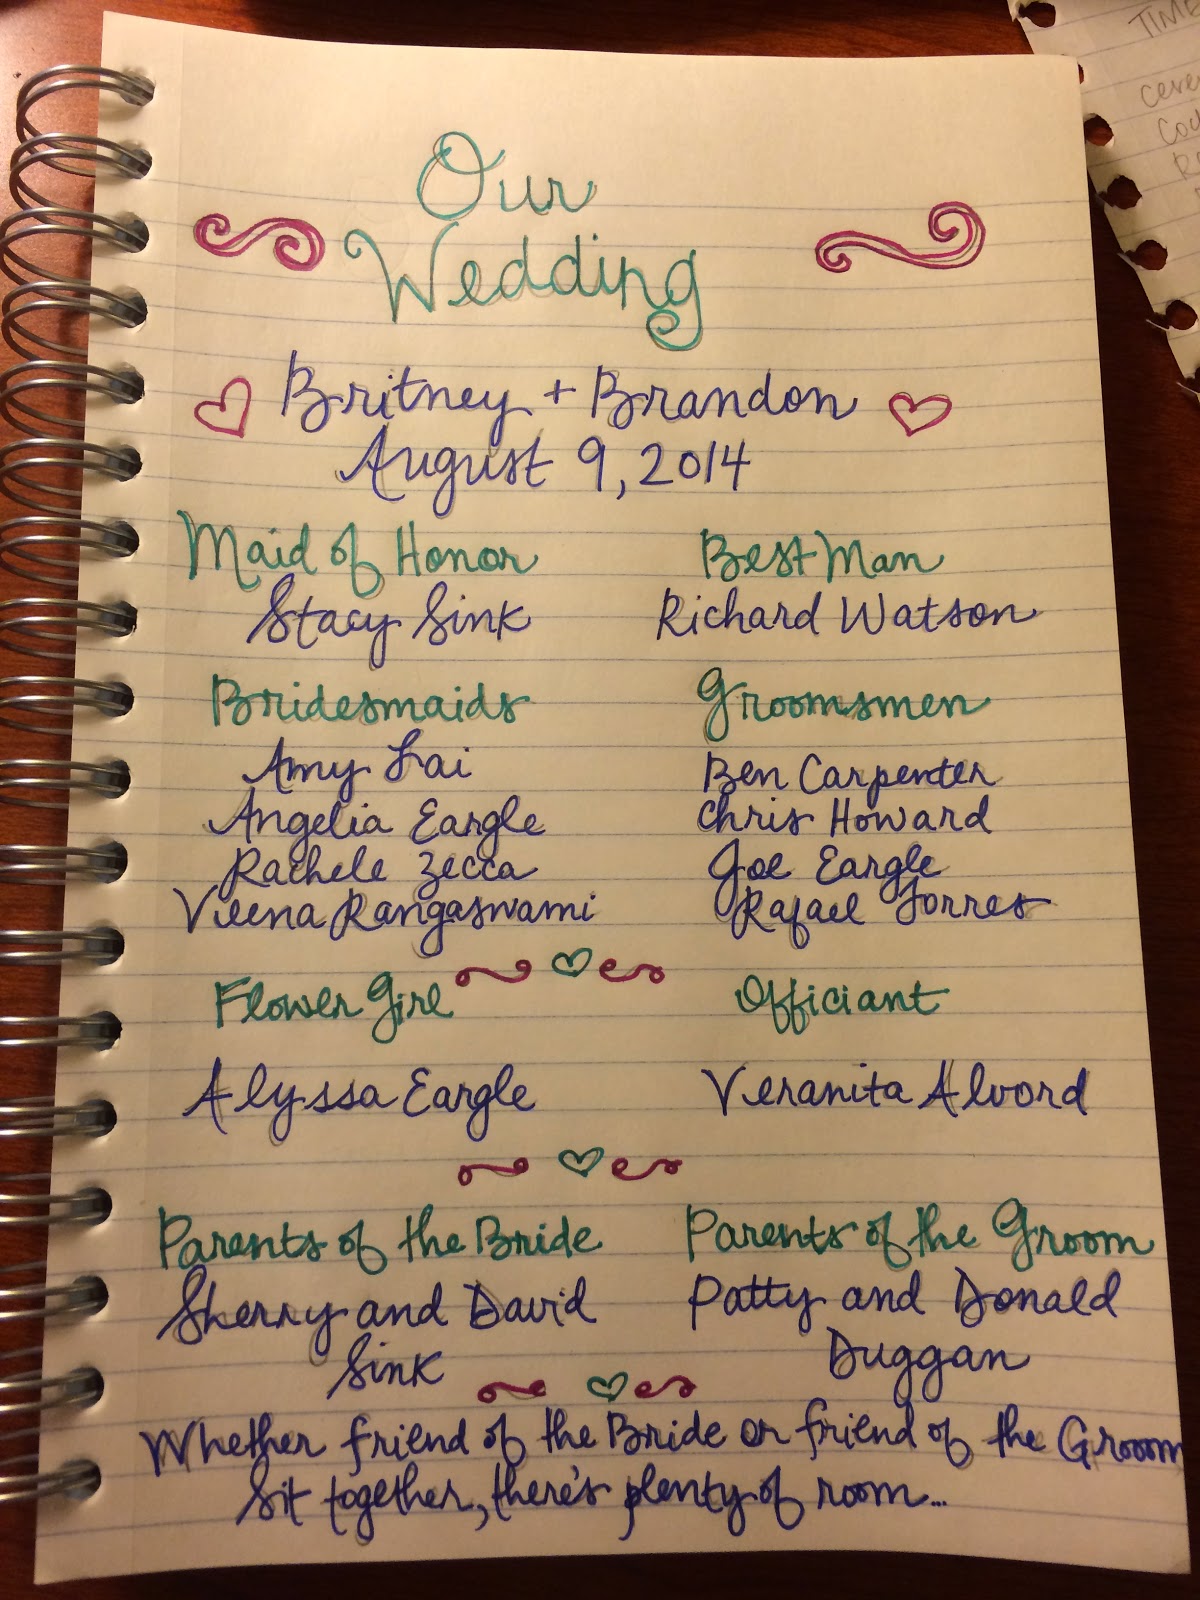 Our
Wedding
Britney + Brandon
August 9, 2014
Maid of Honor
Stacy Sink
Best Man
Richard Watson
Bridesmaids
Amy Lai
Angelia Eargle
Rachele Zecca
Veena Rangaswami
Groomsmen
Ben Carpenter
Chris Howard
Joe Eargle
Rafael Torres
Flower Girl
Alyssa Eargle
Officiant
Veranita Alvord
Parents of the Bride
Sherry and David
Sink
Parents of the Groom
Patty and Donald
Duggan
Whether friend of the Bride or friend of the Groom
Sit together, there's plenty of room...